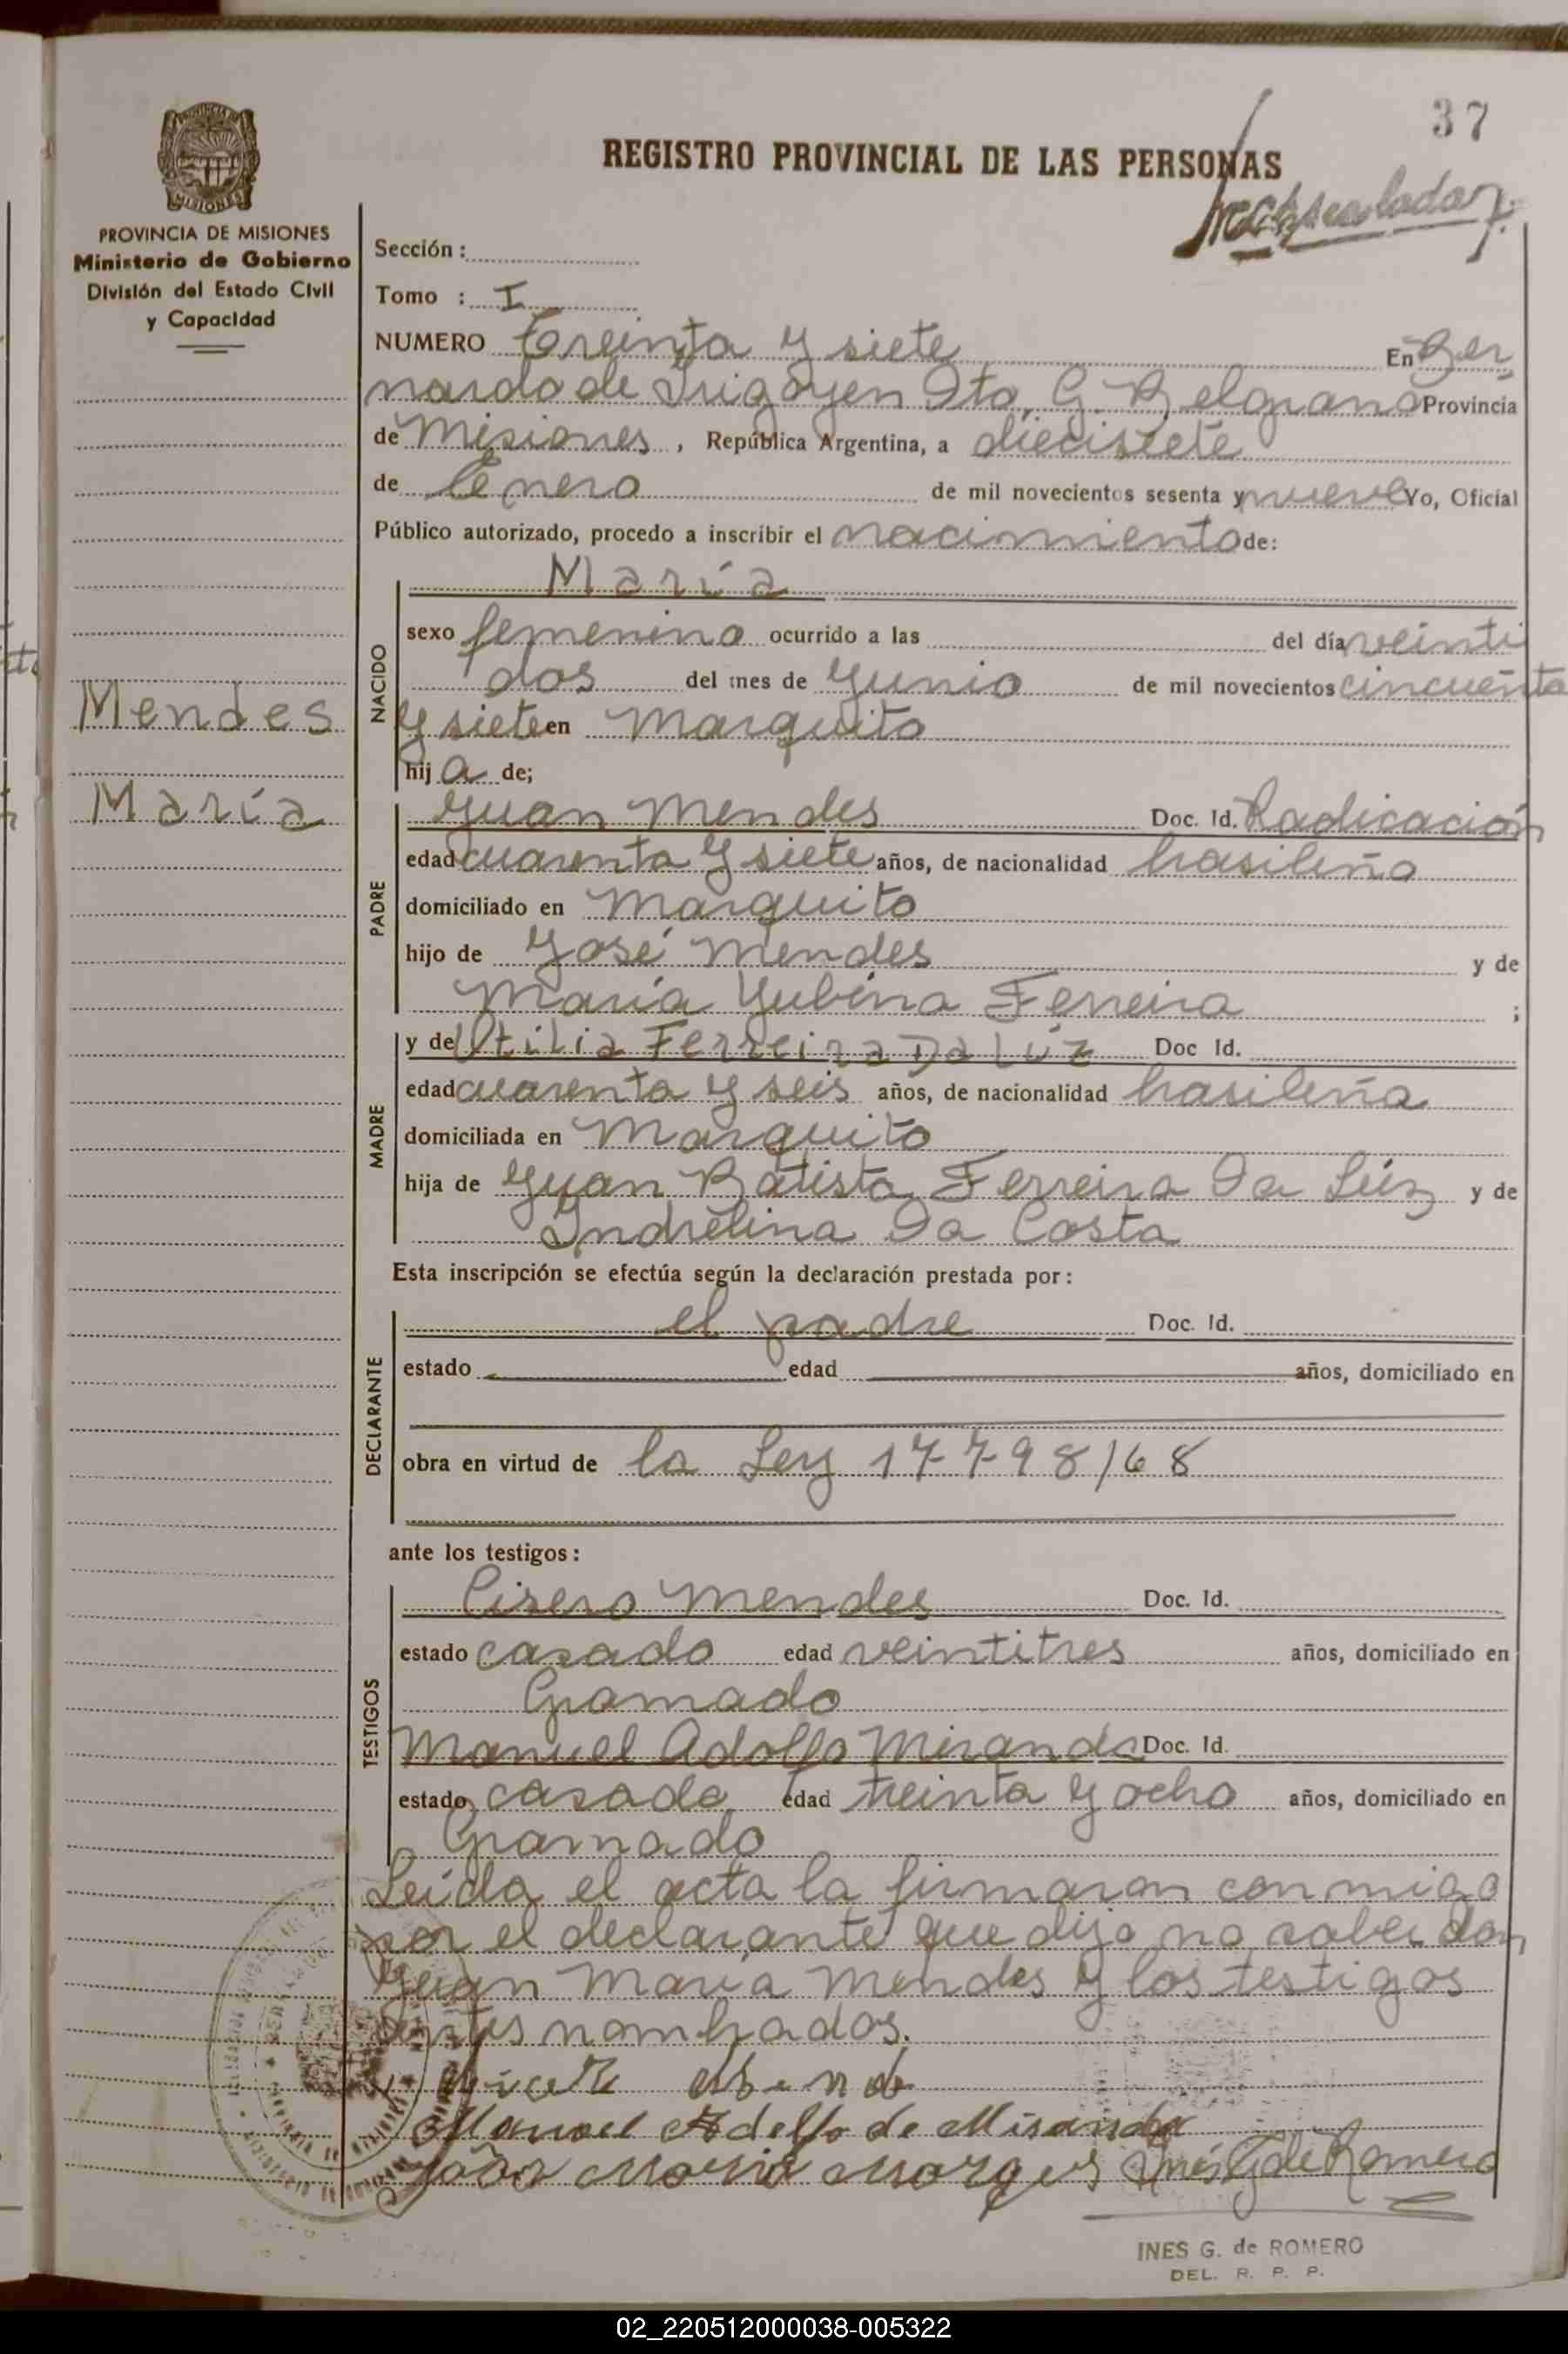 37
REGISTRO PROVINCIAL DE LAS PERSONAS
PROVINCIA DE MISIONES
Ministerio de Gobierno
División del Estado Civil
y Capacidad
Sección :
Tomo : I
NUMERO Treinta y siete En Ber
nardo de Irigoyen Dto. G. Belgrano Provincia
de Misiones , República Argentina, a diecisiete
de Enero de mil novecientos sesenta y nueve Yo, Oficial
Público autorizado, procedo a inscribir el nacimiento de:
María
NACIDO
sexo femenino ocurrido a las del día veinti
dos del mes de Yunio de mil novecientos cincuenta
Mendes
y siete en Marquito
hij a de;
María
PADRE
Yuan Mendes Doc. Id. Radicación
edad cuarenta y siete años, de nacionalidad brasileño
domiciliado en Marquito
hijo de Yosé Mendes y de
María Yubina Ferreira ;
MADRE
y de Utilia Ferreira Da Lúz Doc Id.
edad cuarenta y seis años, de nacionalidad brasileña
domiciliada en Marquito
hija de Yuan Batista Ferreira Da Lúz y de
Indrelina Da Costa
Esta inscripción se efectúa según la declaración prestada por :
DECLARANTE
el padre Doc. Id.
estado edad años, domiciliado en
obra en virtud de la Ley 17798/68
ante los testigos :
TESTIGOS
Cisero Mendes Doc. Id.
estado casado edad veintitres años, domiciliado en
Gramado
Manuel Adolfo Miranda Doc. Id.
estado casado edad treinta y ocho años, domiciliado en
Gramado
Leída el acta la firmaron conmigo
por el declarante que dijo no saber don
Yuan María Mendes y los testigos
antes nombrados.
Manoel Adolfo de Miranda
João Maria Inés G de Romero
INES G. de ROMERO
DEL. R. P. P.
02_220512000038-005322